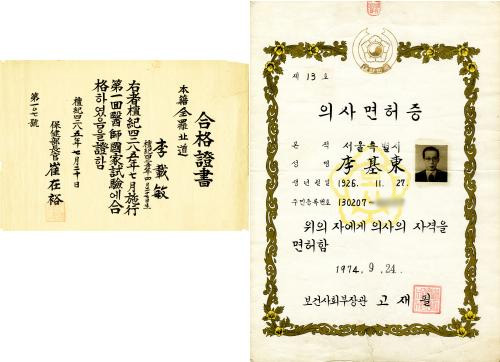 合格證書
本籍 全羅北道
李載敏
右者檀紀四二八五年七月施行
第一回醫師國家試驗에合
格하였음을證함
檀紀四二八五年七月三十日
保健部長官 崔在裕
第一〇七號
제 13 호
의사면허증
본 적 서울특별시
성 명 李基東
생년월일 1926. 11. 27.
주민등록번호 130207-
위의 자에게 의사의 자격을
면허함
1974. 9. 24.
보건사회부장관 고재필